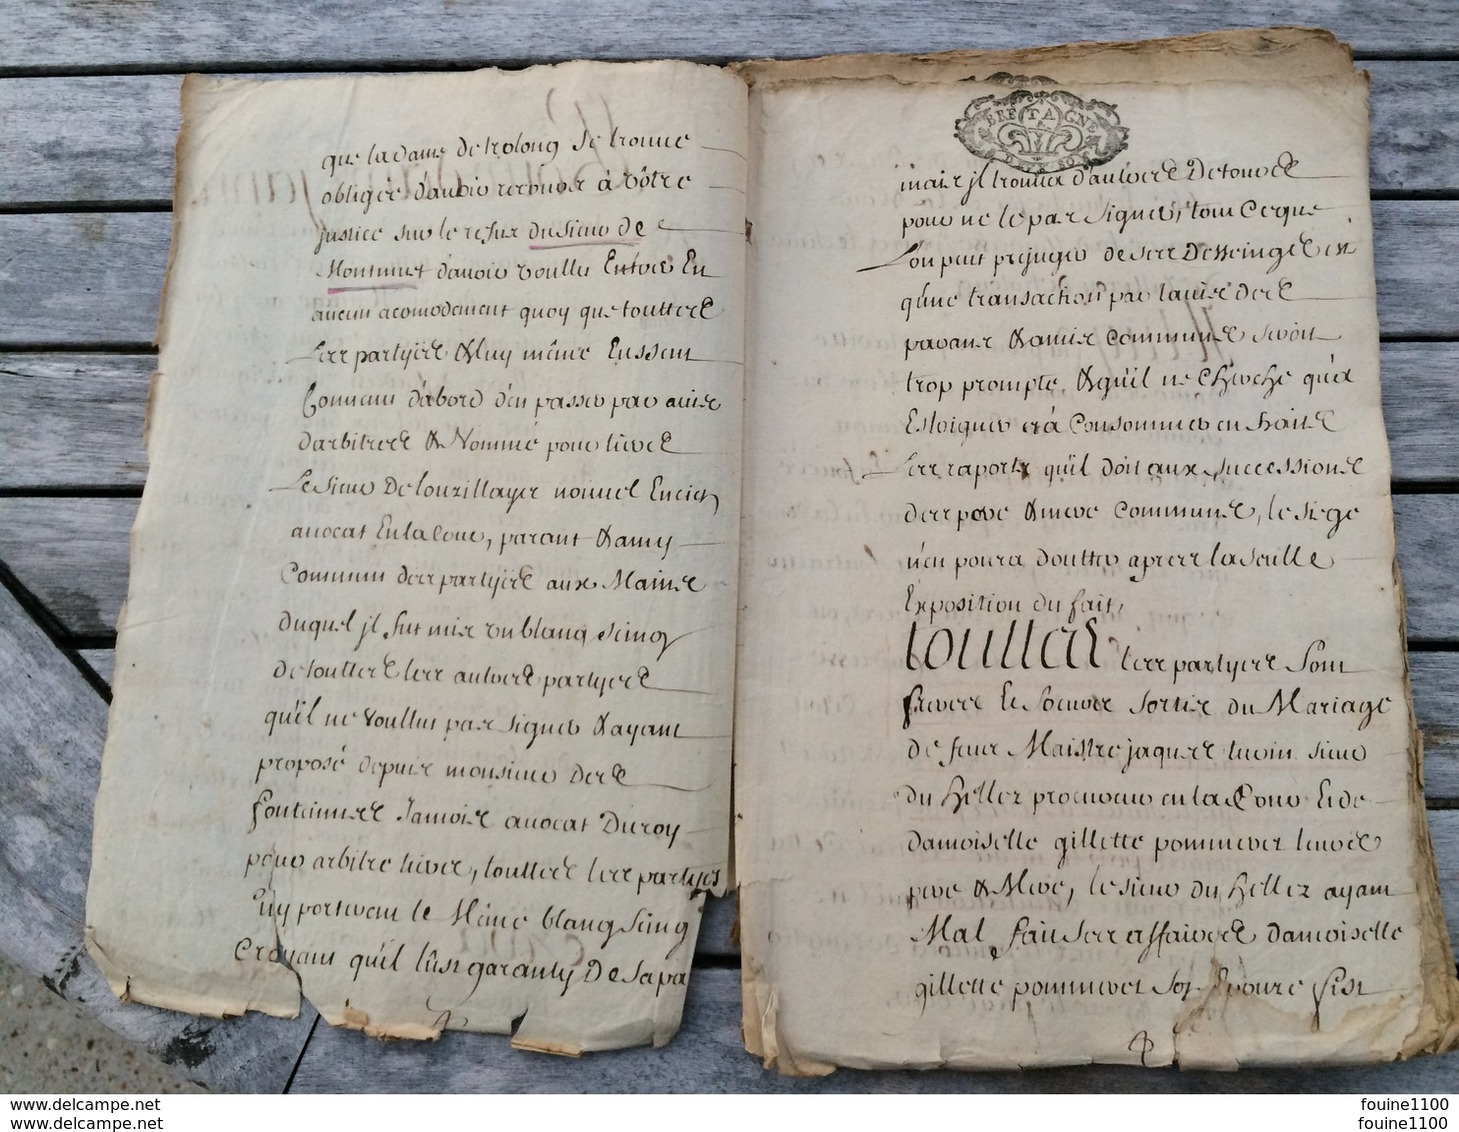 que la dame de trolong se trouue
obligée d'auoir recours à vôtre
justice sur le refus du sieur de
d'auoir voullu Entrer En
aucun acomodement quoy que touttes
les partyes & luy même Eussent
Conuenu d'abord d'en passer par auis
d'arbitres & Nommé pour tiers
Le sieur De nouuel Encien
auocat En la Cour, parant & amy
Commun des partyes aux Mains
duquel jl fut mis vn blanq seing
de touttes les autres partyes
qu'il ne voullut pas signer & ayant
proposé depuis monsieur des
fontainnes Jamois auocat Du roy
pour arbitre tiers, touttes les partyes
luy porterent le Même blanq seing
Croyant qu'il fust garanty De sa pa
BRETAGNE
DEUX SOLS
mais jl trouua d'autres Detours
pour ne le pas signer, tout Ce que
L'on peut prejuger de ses Desseings Est
qu'une transaction par l'auis des
parans & amis Communs seroit
trop prompte, & qu'il ne Cherche qu'à
Esloigner et à Consommer en fraits
les raports qu'il doit aux successions
des pere & mere Communs, le siege
n'en poura doutter apres la seulle
Exposition du fait,
touttes les partyes sont
freres Et soeurs sortis du Mariage
de feus Maistre jaques sieur
du Hellez procureur en la Cour Et de
damoiselle gillette leurs
pere & Mere, le sieur du Hellez ayant
Mal fait ses affaires damoiselle
gillette son Epouse fist
delcampe.net
delcampe.net
fouine1100
fouine1100